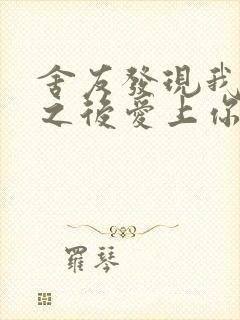 舍友發現我
之後愛上你
羅琴